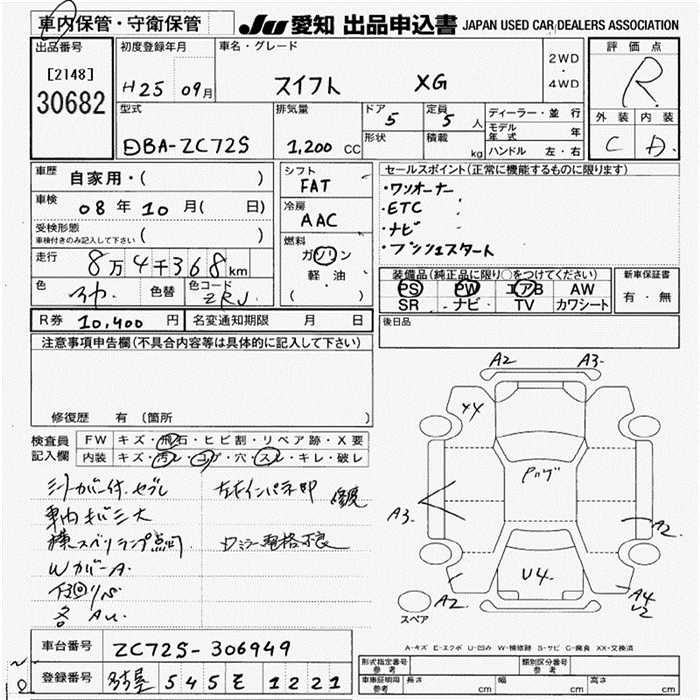 車内保管・守衛保管 JU 愛知 出品申込書 JAPAN USED CAR DEALERS ASSOCIATION
出品番号 初度登録年月 車名・グレード 評価点
[2148] H25 09月 スイフト XG 2WD・4WD R
30682
型式 排気量 ドア 5 定員 5 人 ディーラー・並行 外装 内装
DBA-ZC72S 1,200 CC 形状 積載 kg モデル年式 年 C D
ハンドル 左・右
車歴 自家用・( ) シフト FAT セールスポイント(正常に機能するものに限ります)
車検 08年10月( 日) 冷房 AAC ・ワンオーナー
・ETC
受検形態 ・ナビ
車検付きのみ記入して下さい ( ) 燃料 ・プッシュスタート
走行 8万4千368km ガソリン
軽油
( )
装備品(純正品に限り○をつけてください) 新車保証書
色 色替 色コード ZRJ PS PW エアB AW 有・無
SR ナビ TV カワシート
R券 10,400 円 名変通知期限 月 日 後日品
注意事項申告欄(不具合内容等は具体的に記入して下さい)
修復歴 有 (箇所
A2 A3
A3 A2
U4
A2 A4
U2
スペア
検査員記入欄 FW キズ・飛石・ヒビ割・リペア跡・X要
内装 キズ・汚レ・コゲ・穴・スレ・キレ・破レ
左右インパネ部
車内キバミ大
WカバーA
A-キズ E-エクボ U-凹み W-補修跡 S-サビ C-腐食 XX-交換済
車台番号 ZC72S-306949
登録番号 名古屋 545 モ 1221
形式指定番号 参考 類別区分番号 参考
車庫証明用 参考 長さ cm 幅 cm 高さ cm